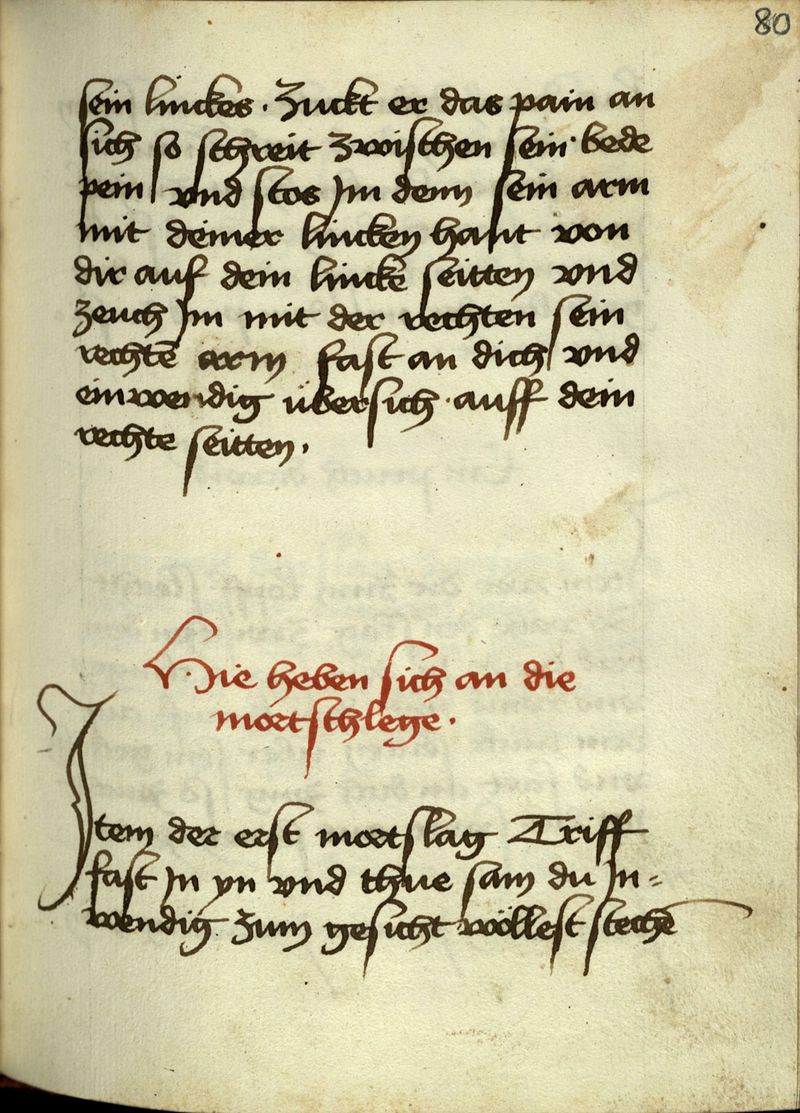 80
sein linckes · Zuckt er das pain an
sich so schreit zwischen sein bede
pein vnd stos Jm denn sein arm
mit deiner lincken hant von
dir auf dein lincke seitten vnd
zeuch Jm mit der rechten sein
rechtē arm fast an dich vnd
einwendig übersich · auff dein
rechte seitten ·
Hie heben sich an die
mortschlege ·
Jtem der erst mortslag Triff
fast Jn yn vnd thue sam du Jn=
wendig zum gesicht wöllest stechē